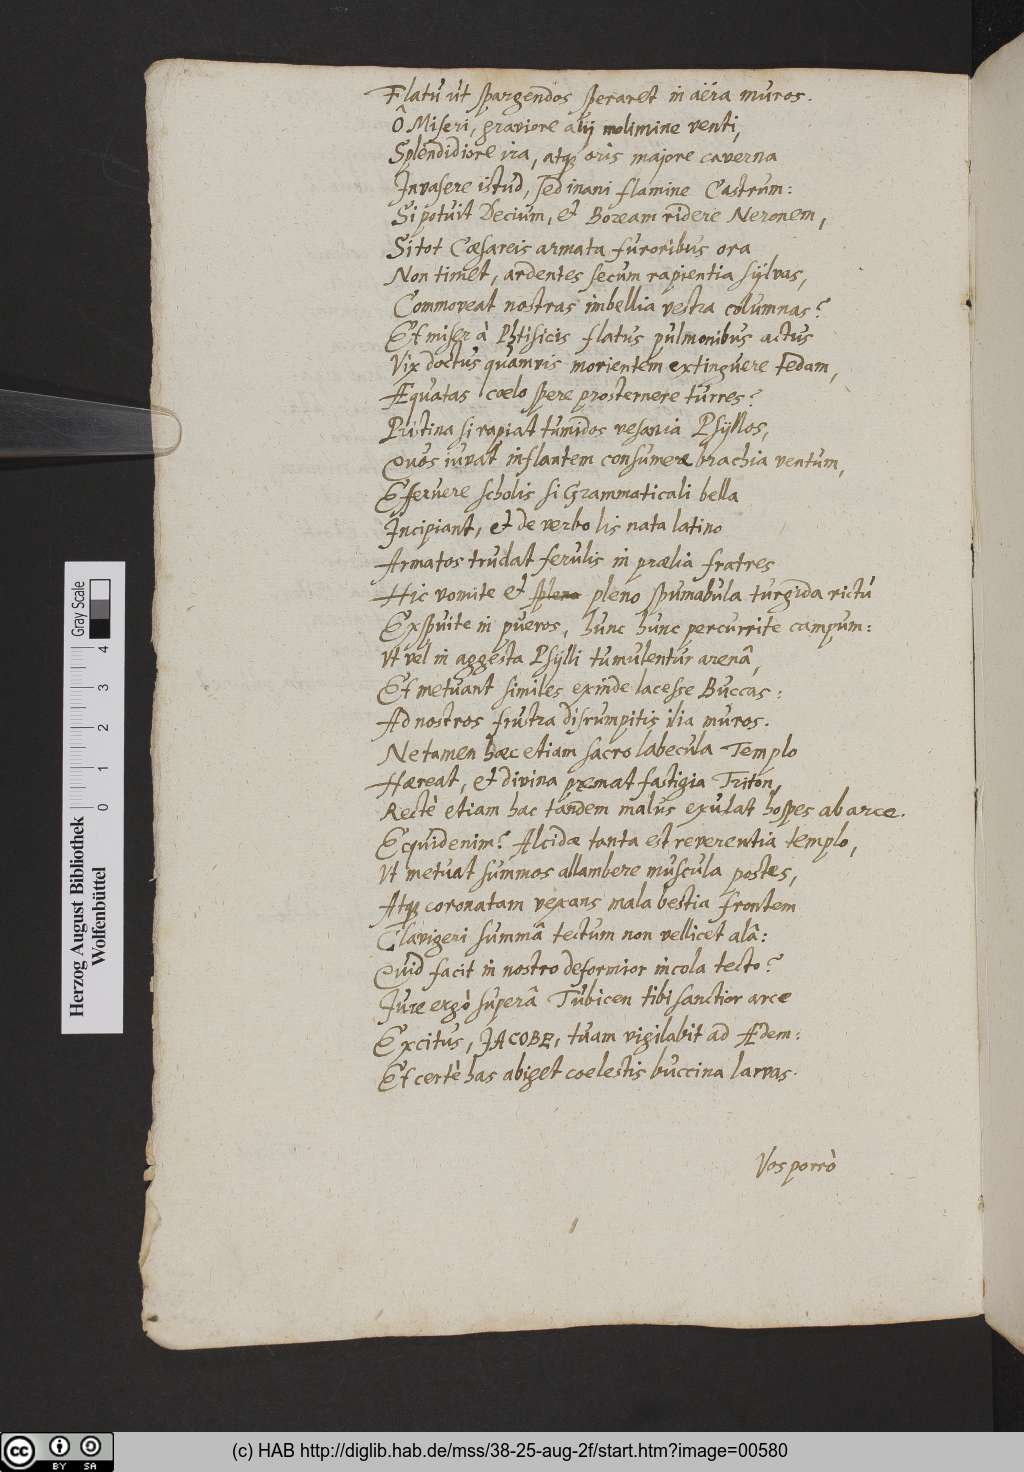 Flatu ut spargendos speraret in aëra muros.
Ô Miseri, graviore alij molimine venti,
Splendidiore ira, atq; oris majore caverna
Invasere istud, sed inani flamine Castrum:
Si potuit Decium, et Boream ridere Neronem,
Si tot Cæsareis armata furoribus ora
Non timet, ardentes secum rapientia sÿlvas,
Commoveat nostras imbellia vestra columnas?
Et miser à Phtisicis flatus pulmonibus actus
Vix doctus quamvis morientem extinguere tedam,
Æquatas coelo spere prosternere turres?
Pristina si rapiat tumidos vesania Psÿllos,
Quos iuvat inflantem consumere brachia ventum,
Effervere scholis si Grammaticali bella
Incipiant, et de verbo lis nata latino
Armatos trudat ferulis in prælia fratres
Hic vomite et pleno spumabula turgida rictú
Exspuite in pueros, hunc hunc percurrite campum:
Vt vel in aggesta Psÿlli tumulentur arenâ,
Et metuant similes exinde lacesse Buccas:
Ad nostros frustra disrumpitis ilia muros.
Ne tamen hæc etiam sacro labecula Templo
Hæreat, et divina premat fastigia Triton,
Rectè etiam hac tandem malus exulat hospes ab arce.
Ecquid enim? Alcidæ tanta est reverentia templo,
Vt metuat summos allambere muscula postes,
Atq; coronatam vexans mala bestia frontem
Clavigeri summâ tectum non vellicet alâ:
Quid facit in nostro deformior incola tecto?
Jure ergò superâ Tubicen tibi sanctior arce
Excitus, JACOBE, tuam vigilabit ad Ædem:
Et certè has abiget coelestis buccina larvas.
Vos porrò
Gray Scale
0 1 2 3 4
Herzog August Bibliothek
Wolfenbüttel
cc BY SA
(c) HAB http://diglib.hab.de/mss/38-25-aug-2f/start.htm?image=00580